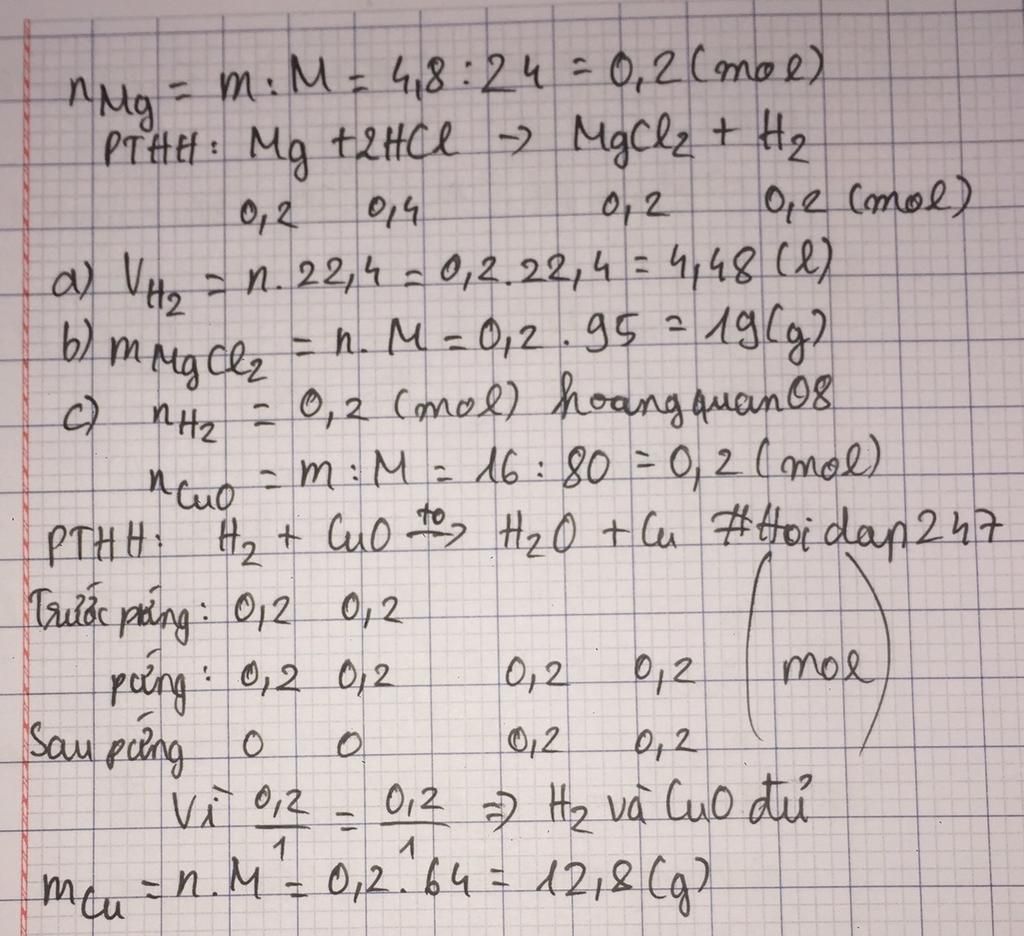 nMg = m : M = 4,8 : 24 = 0,2 (mol)
PTHH: Mg + 2HCl → MgCl2 + H2
0,2 0,4 0,2 0,2 (mol)
a) VH2 = n . 22,4 = 0,2 . 22,4 = 4,48 (l)
b) mMgCl2 = n . M = 0,2 . 95 = 19 (g)
c) nH2 = 0,2 (mol) hoangquan08
nCuO = m : M = 16 : 80 = 0,2 (mol)
PTHH: H2 + CuO to→ H2O + Cu #Hoidap247
Trước pứng: 0,2 0,2
pứng: 0,2 0,2 0,2 0,2 (mol)
Sau pứng 0 0 0,2 0,2
Vì 0,2/1 = 0,2/1 ⇒ H2 và CuO đủ
mCu = n . M = 0,2 . 64 = 12,8 (g)